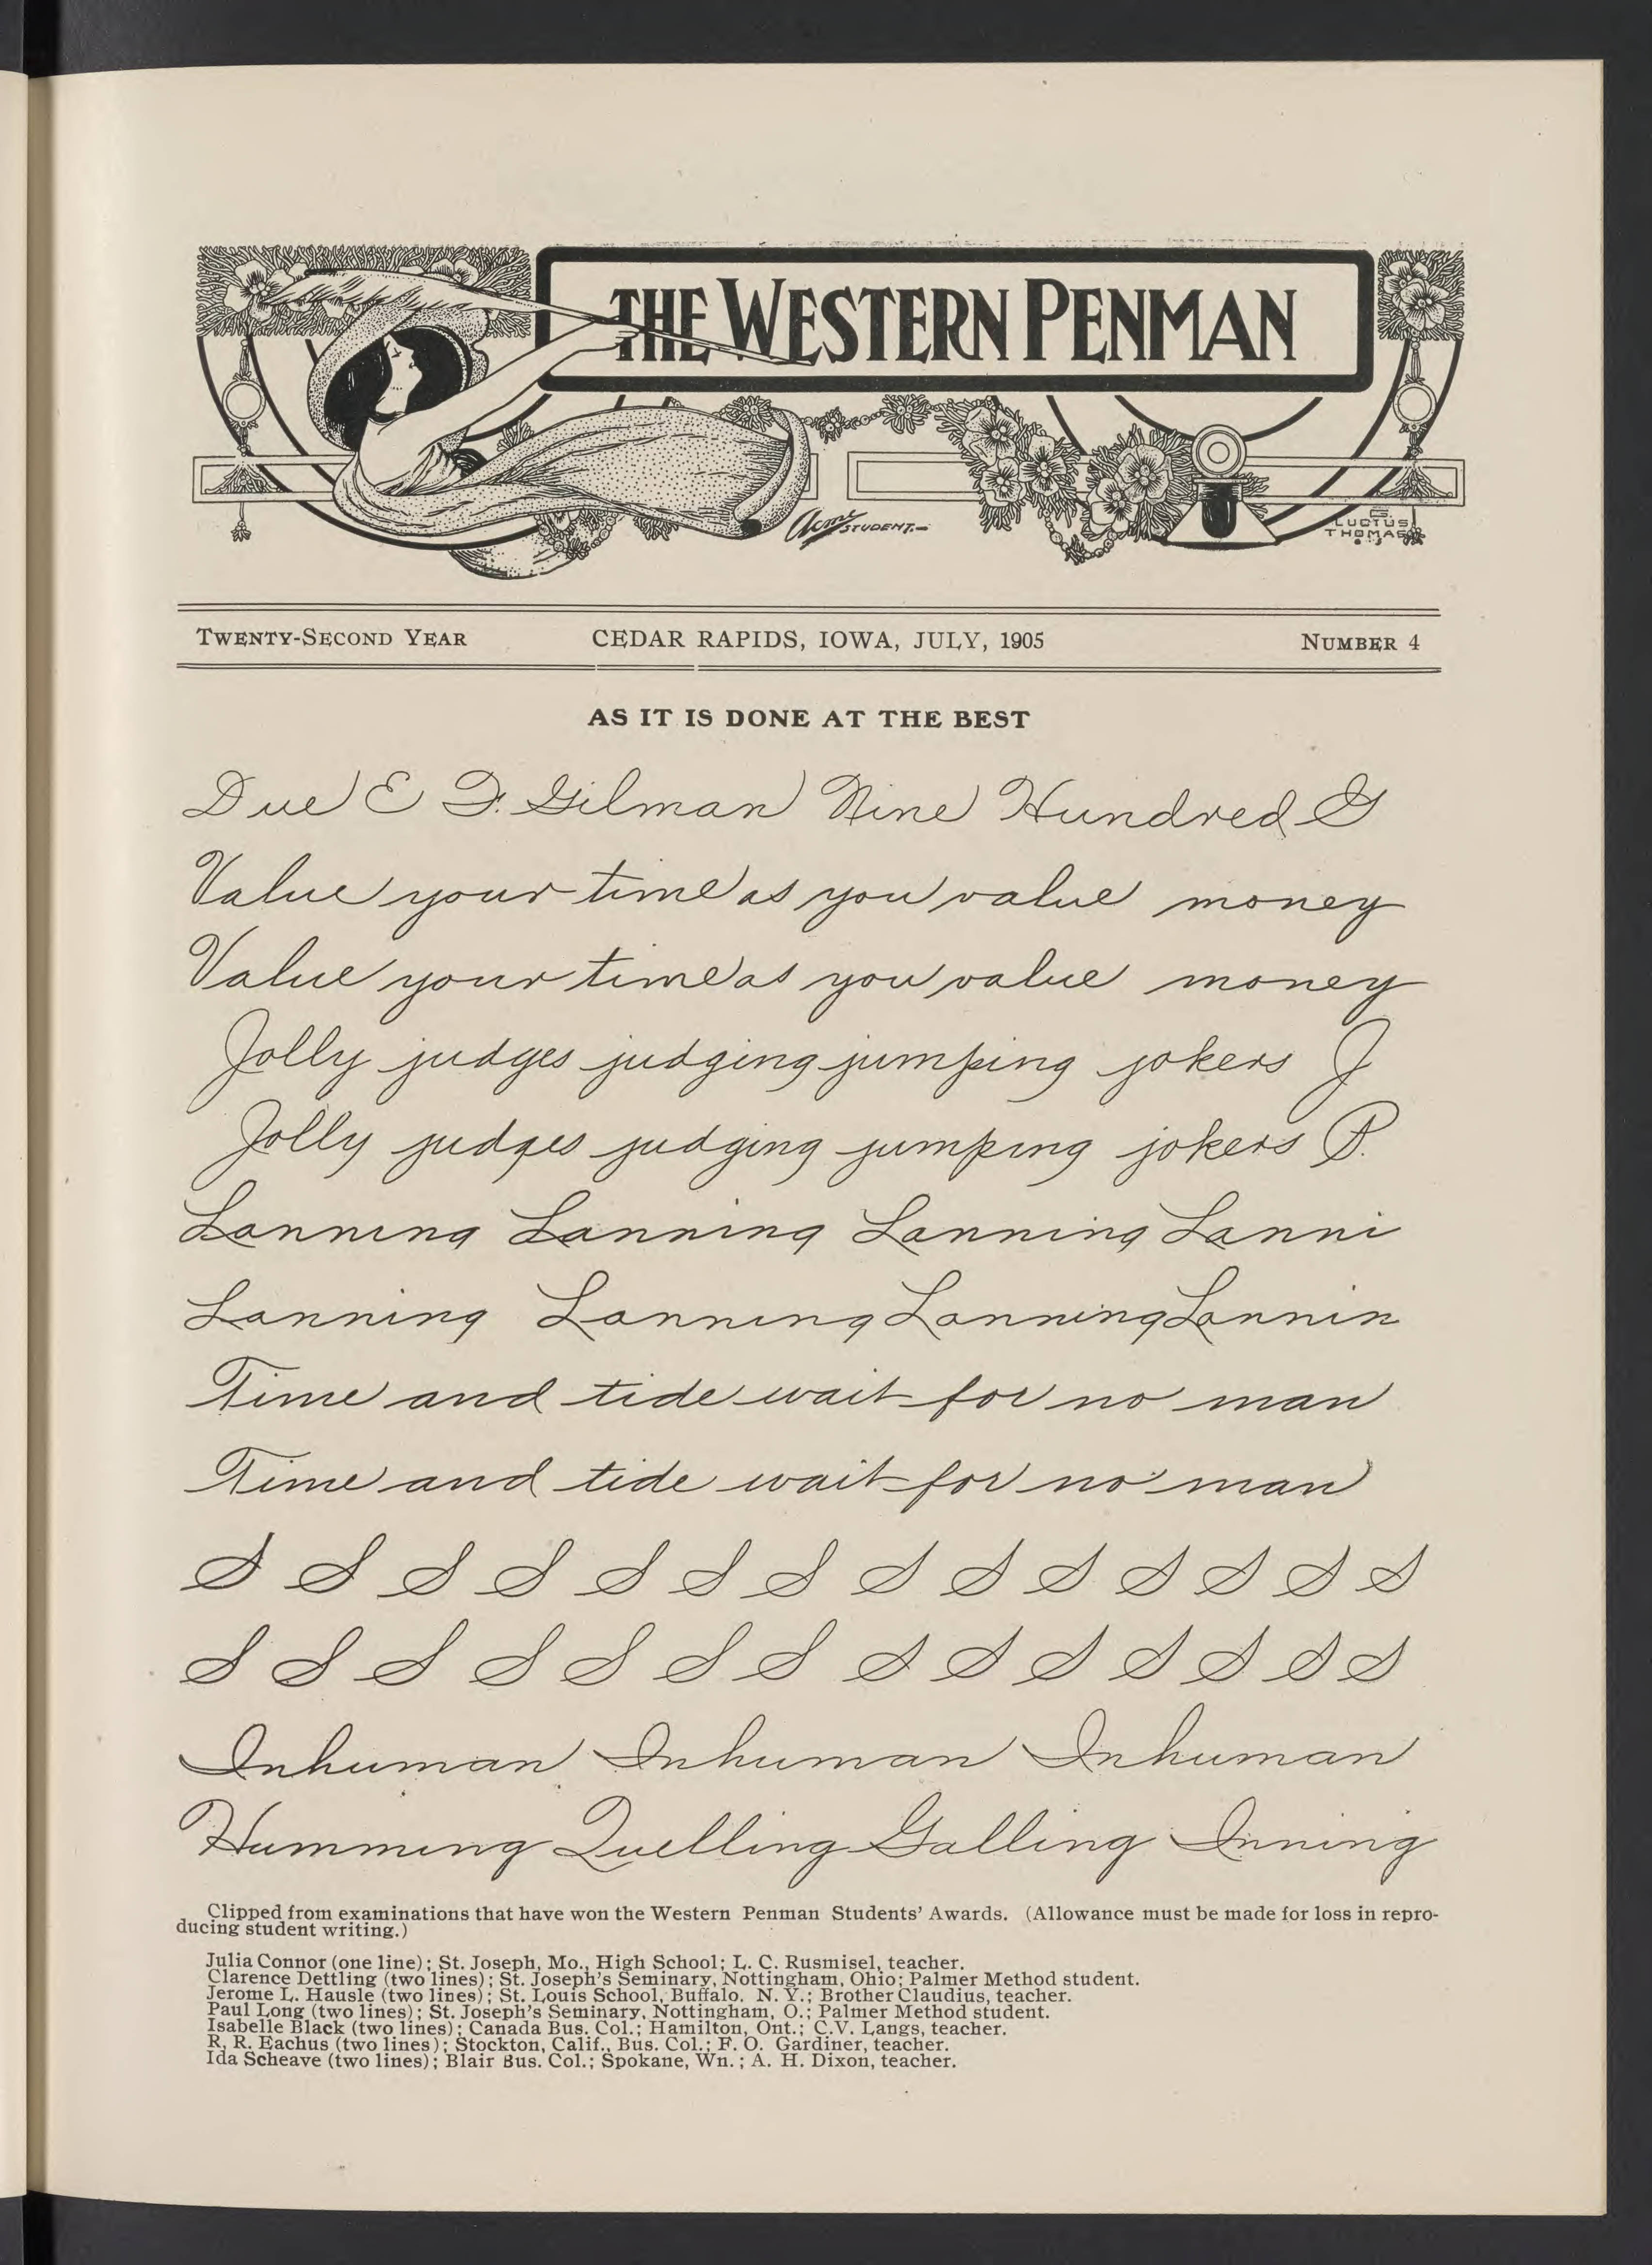 THE WESTERN PENMAN
Acme STUDENT.
G. LUCIUS
THOMAS
TWENTY-SECOND YEAR CEDAR RAPIDS, IOWA, JULY, 1905 NUMBER 4
AS IT IS DONE AT THE BEST
Due E F. Gilman Nine Hundred G
Value your time as you value money
Value your time as you value money
Jolly judges judging jumping jokers J
Jolly judges judging jumping jokers P.
Lanning Lanning Lanning Lanni
Lanning Lanning Lanning Lannin
Time and tide wait for no man
Time and tide wait for no man
S S S S S S S S S S S S S S
S S S S S S S S S S S S S S
Inhuman Inhuman Inhuman
Humming Quelling Galling Inning
Clipped from examinations that have won the Western Penman Students' Awards. (Allowance must be made for loss in repro-
ducing student writing.)
Julia Connor (one line); St. Joseph, Mo., High School; L. C. Rusmisel, teacher.
Clarence Dettling (two lines); St. Joseph's Seminary, Nottingham, Ohio; Palmer Method student.
Jerome L. Hausle (two lines); St. Louis School, Buffalo, N. Y.; Brother Claudius, teacher.
Paul Long (two lines); St. Joseph's Seminary, Nottingham, O.; Palmer Method student.
Isabelle Black (two lines); Canada Bus. Col.; Hamilton, Ont.; C.V. Langs, teacher.
R. R. Eachus (two lines); Stockton, Calif., Bus. Col.; F. O. Gardiner, teacher.
Ida Scheave (two lines); Blair Bus. Col.; Spokane, Wn.; A. H. Dixon, teacher.